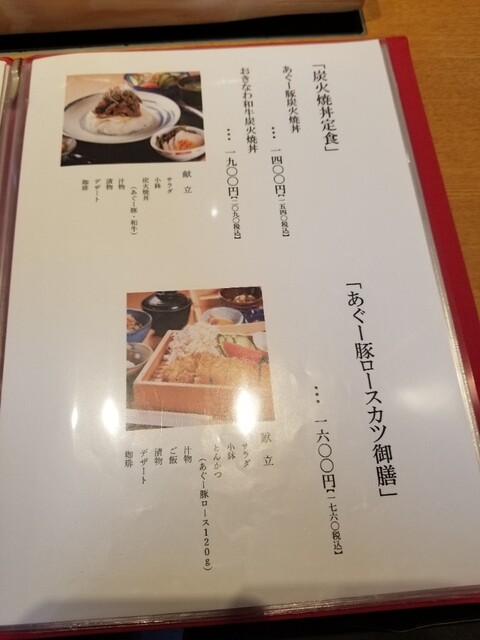 「炭火焼丼定食」
あぐー豚炭火焼丼
… 一四〇〇円【一五四〇税込】
おきなわ和牛炭火焼丼
… 一九〇〇円【二〇九〇税込】
献立
サラダ
小鉢
炭火焼丼
(あぐー豚・和牛)
汁物
漬物
デザート
珈琲
「あぐー豚ロースカツ御膳」
… 一六〇〇円【一七六〇税込】
献立
サラダ
小鉢
とんかつ
(あぐー豚ロース120g)
汁物
ご飯
漬物
デザート
珈琲